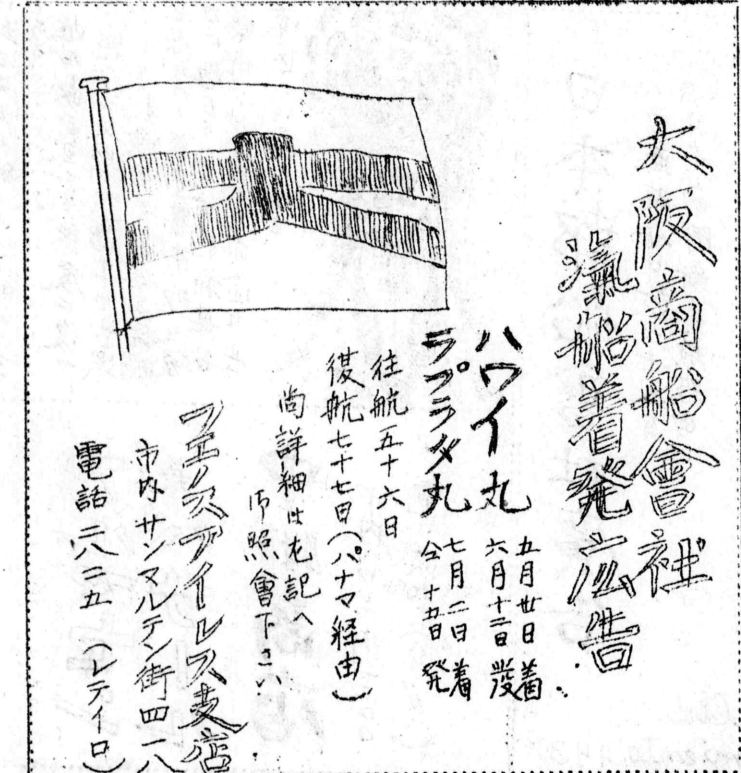 大阪商船會社
滊船着発広告
ハワイ丸
五月廿日着
六月十二日発
ラプラタ丸
七月二日着
仝十五日発
往航五十六日
復航七十七日(パナマ経由)
尚詳細は左記へ
御照會下さい
ブエノスアイレス支店
市内サンマルテン街四一八
電話 二八二五 (レティーロ)